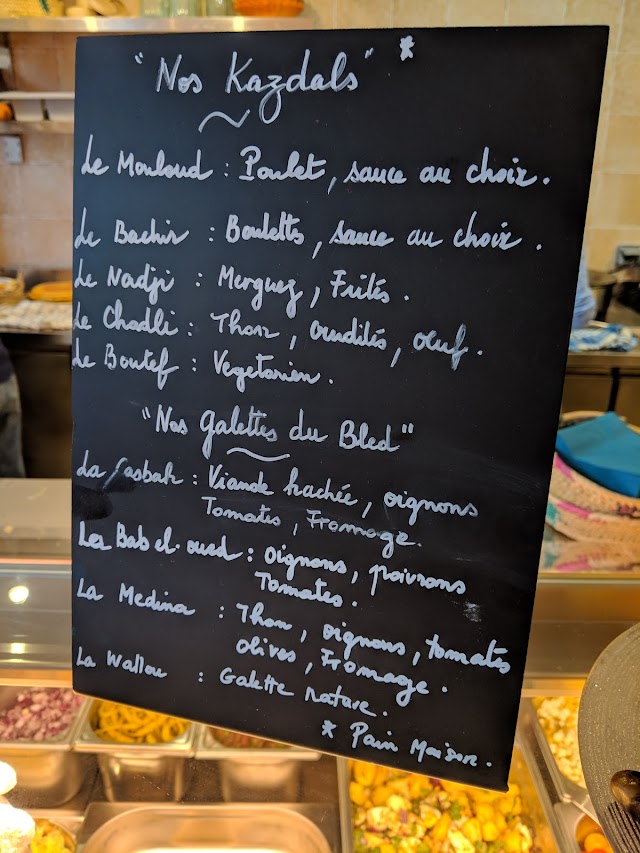 "Nos Kazdals" *
Le Mouloud : Poulet, sauce au choix.
Le Bachir : Boulettes, sauce au choix.
Le Nadji : Merguez, Frites.
Le Chadli : Thon, crudités, œuf.
Le Boutef : Vegetarien.
"Nos galettes du Bled"
La Casbah : Viande hachée, oignons
Tomates, Fromage.
La Bab el.oued : oignons, poivrons
Tomates.
La Medina : Thon, oignons, tomates
olives, Fromage.
La Wallou : Galette nature.
* Pain Maison.